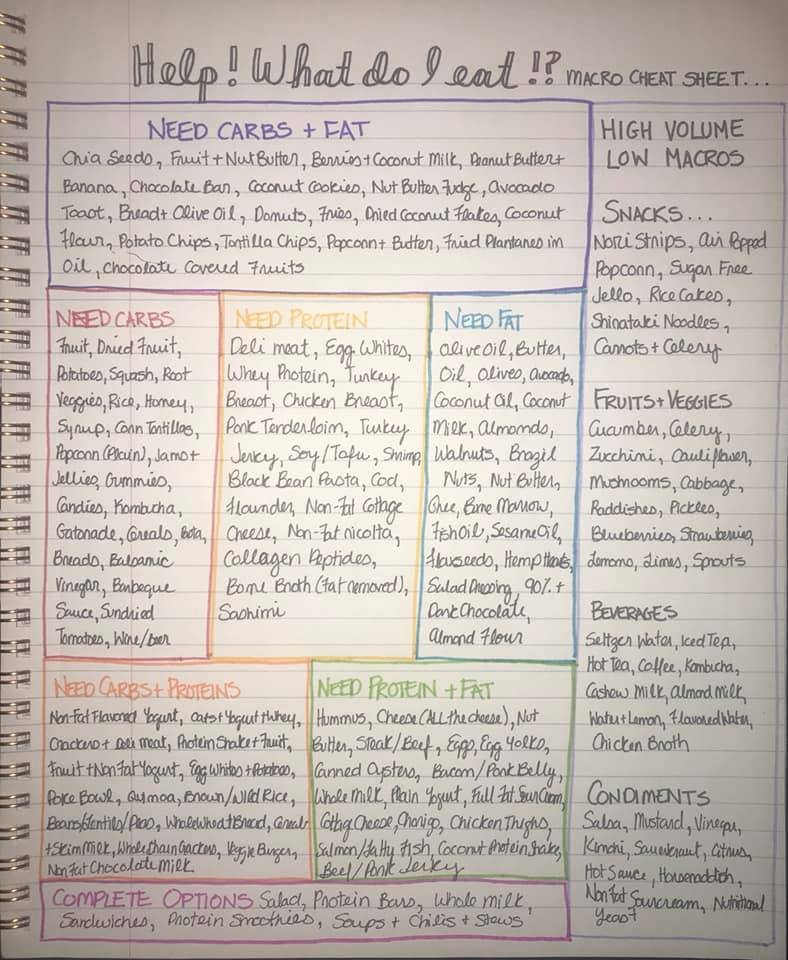 Help! What do I eat!? MACRO CHEAT SHEET...
NEED CARBS + FAT
Chia Seeds, Fruit + Nut Butter, Berries + Coconut Milk, Peanut Butter +
Banana, Chocolate Bar, Coconut Cookies, Nut Butter Fudge, Avocado
Toast, Bread + Olive Oil, Donuts, Fries, Dried Coconut Flakes, Coconut
Flour, Potato Chips, Tortilla Chips, Popcorn + Butter, Fried Plantanes in
Oil, Chocolate Covered Fruits
NEED CARBS
Fruit, Dried Fruit,
Potatoes, Squash, Root
Veggies, Rice, Honey,
Syrup, Corn Tortillas,
Popcorn (Plain), Jams +
Jellies, Gummies,
Candies, Kombucha,
Gatorade, Cereals,
Breads, Balsamic
Vinegar, Barbeque
Sauce, Sundried
Tomatoes, Wine/beer
NEED PROTEIN
Deli meat, Egg Whites,
Whey Protein, Turkey
Breast, Chicken Breast,
Pork Tenderloin, Turkey
Jerky, Soy/Tofu, Shrimp,
Black Bean Pasta, Cod,
Flounder, Non-Fat Cottage
Cheese, Non-Fat ricotta,
Collagen Peptides,
Bone Broth (Fat removed),
Sashimi
NEED FAT
Olive Oil, Butter,
Oil, Olives, Avocado,
Coconut Oil, Coconut
Milk, Almonds,
Walnuts, Brazil
Nuts, Nut Butter,
Ghee, Bone Marrow,
Fish Oil, Sesame Oil,
Flaxseeds, Hemp Hearts,
Salad Dressing, 90% +
Dark Chocolate,
Almond Flour
NEED CARBS + PROTEINS
Non-Fat Flavored Yogurt, Oats + Yogurt + Whey,
Crackers + Deli meat, Protein Shake + Fruit,
Fruit + Non Fat Yogurt, Egg Whites + Potatoes,
Poke Bowl, Quinoa, Brown/Wild Rice,
Beans/Lentils/Peas, Whole Wheat Bread, Cereal
+ Skim Milk, Whole Grain Crackers, Veggie Burger,
Non Fat Chocolate Milk
NEED PROTEIN + FAT
Hummus, Cheese (ALL the cheese), Nut
Butter, Steak/Beef, Eggs, Egg Yolks,
Canned Oysters, Bacon/Pork Belly,
Whole Milk, Plain Yogurt, Full Fat Sour Cream,
Cheese, Chorizo, Chicken Thighs,
Salmon/Fatty Fish, Coconut Protein Shake,
Beef/Pork Jerky
COMPLETE OPTIONS Salad, Protein Bars, Whole milk,
Sandwiches, Protein Smoothies, Soups + Chilis + Stews
HIGH VOLUME
LOW MACROS
SNACKS...
Nori Strips, Air Popped
Popcorn, Sugar Free
Jello, Rice Cakes,
Shirataki Noodles,
Carrots + Celery
FRUITS + VEGGIES
Cucumber, Celery,
Zucchini, Cauliflower,
Mushrooms, Cabbage,
Raddishes, Pickles,
Blueberries, Strawberries,
Lemons, Limes, Sprouts
BEVERAGES
Seltzer Water, Iced Tea,
Hot Tea, Coffee, Kombucha,
Cashew Milk, Almond Milk,
Water + Lemon, Flavored Water,
Chicken Broth
CONDIMENTS
Salsa, Mustard, Vinegar,
Kimchi, Sauerkraut, Citrus,
Hot Sauce, Horseraddish,
Non Fat Sourcream, Nutritional
Yeast